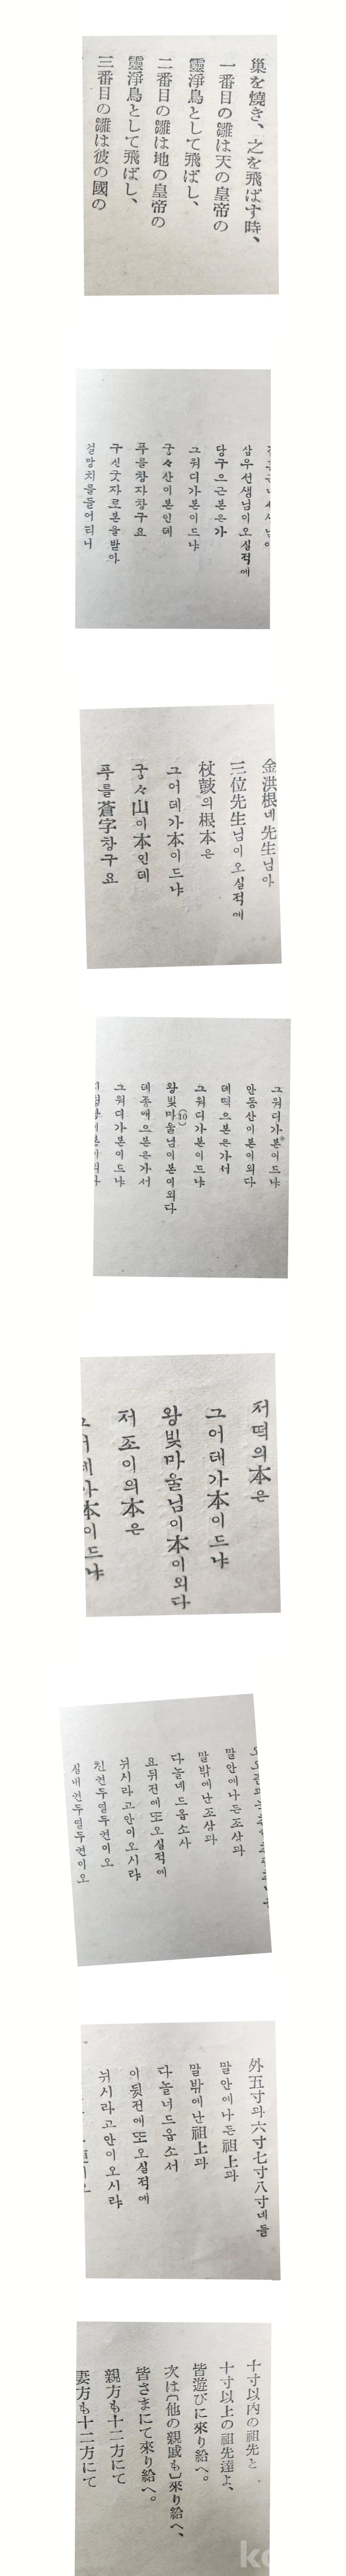 巢を燒き、之を飛ばす時、
一番目の雛は天の皇帝の
靈淨鳥として飛ばし、
二番目の雛は地の皇帝の
靈淨鳥として飛ばし、
三番目の雛は彼の國の
삼우선생님이오실적에
당구으근본은가
그워디가본이드냐
궁々산이본인데
푸를창자창구요
구신굿자로본을발아
걸망치를들어티니
金洪根네先生님아
三位先生님이오실적에
杖鼓의根本은
그어데가本이드냐
궁々山이本인데
푸를蒼字창구요
그워디가본이드냐
안동산이본이외다
데떡으본은가서
그워디가본이드냐
왕빛마울님이본이외다
(10)
데종애으본은가서
그워디가본이드냐
저떡의本은
그어데가本이드냐
왕빛마울님이本이외다
저조이의本은
그어데가本이드냐
말안에나든조상과
말밖에난조상과
다놀네드옵소사
요뒤전에또오실적에
뉘시라고안이오시랴
친켠두열두켠이오
실내켠두열두켠이오
外五寸과六寸七寸八寸네들
말안에나든祖上과
말밖에난祖上과
다놀너드옵소서
이뒷전에또오실적에
뉘시라고안이오시랴
十寸以內の祖先と
十寸以上の祖先達よ、
皆遊びに來り給へ。
次は〔他の親戚も〕來り給へ、
皆さまにて來り給へ。
親方も十二方にて
妻方も十二方にて